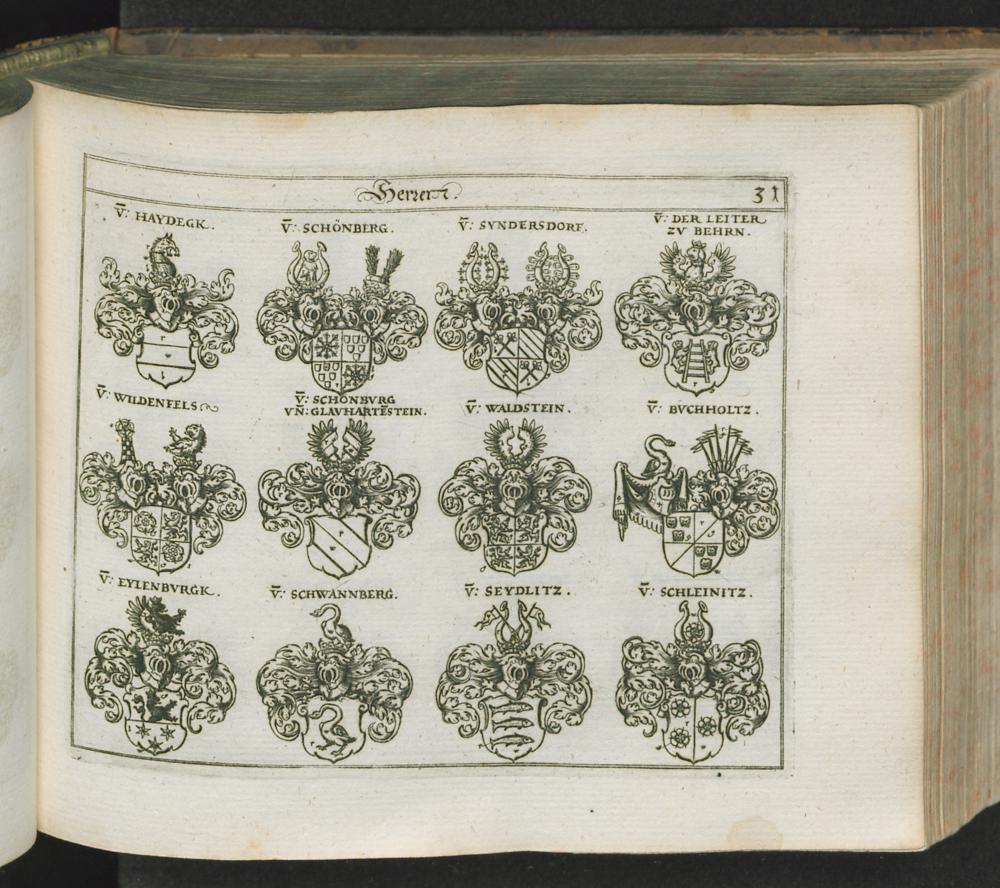 Herren.
31
V̄: HAYDEGK.
V̄: SCHÖNBERG.
V̄: SVNDERSDORF.
V̄: DER LEITER
ZV BEHRN.
V̄: WILDENFELS
V̄: SCHÖNBVRG
VN̄: GLAVHARTĒSTEIN.
V̄: WALDSTEIN.
V̄: BVCHHOLTZ.
V̄: EYLENBVRGK.
V̄: SCHWANNBERG.
V̄: SEYDLITZ.
V̄: SCHLEINITZ.